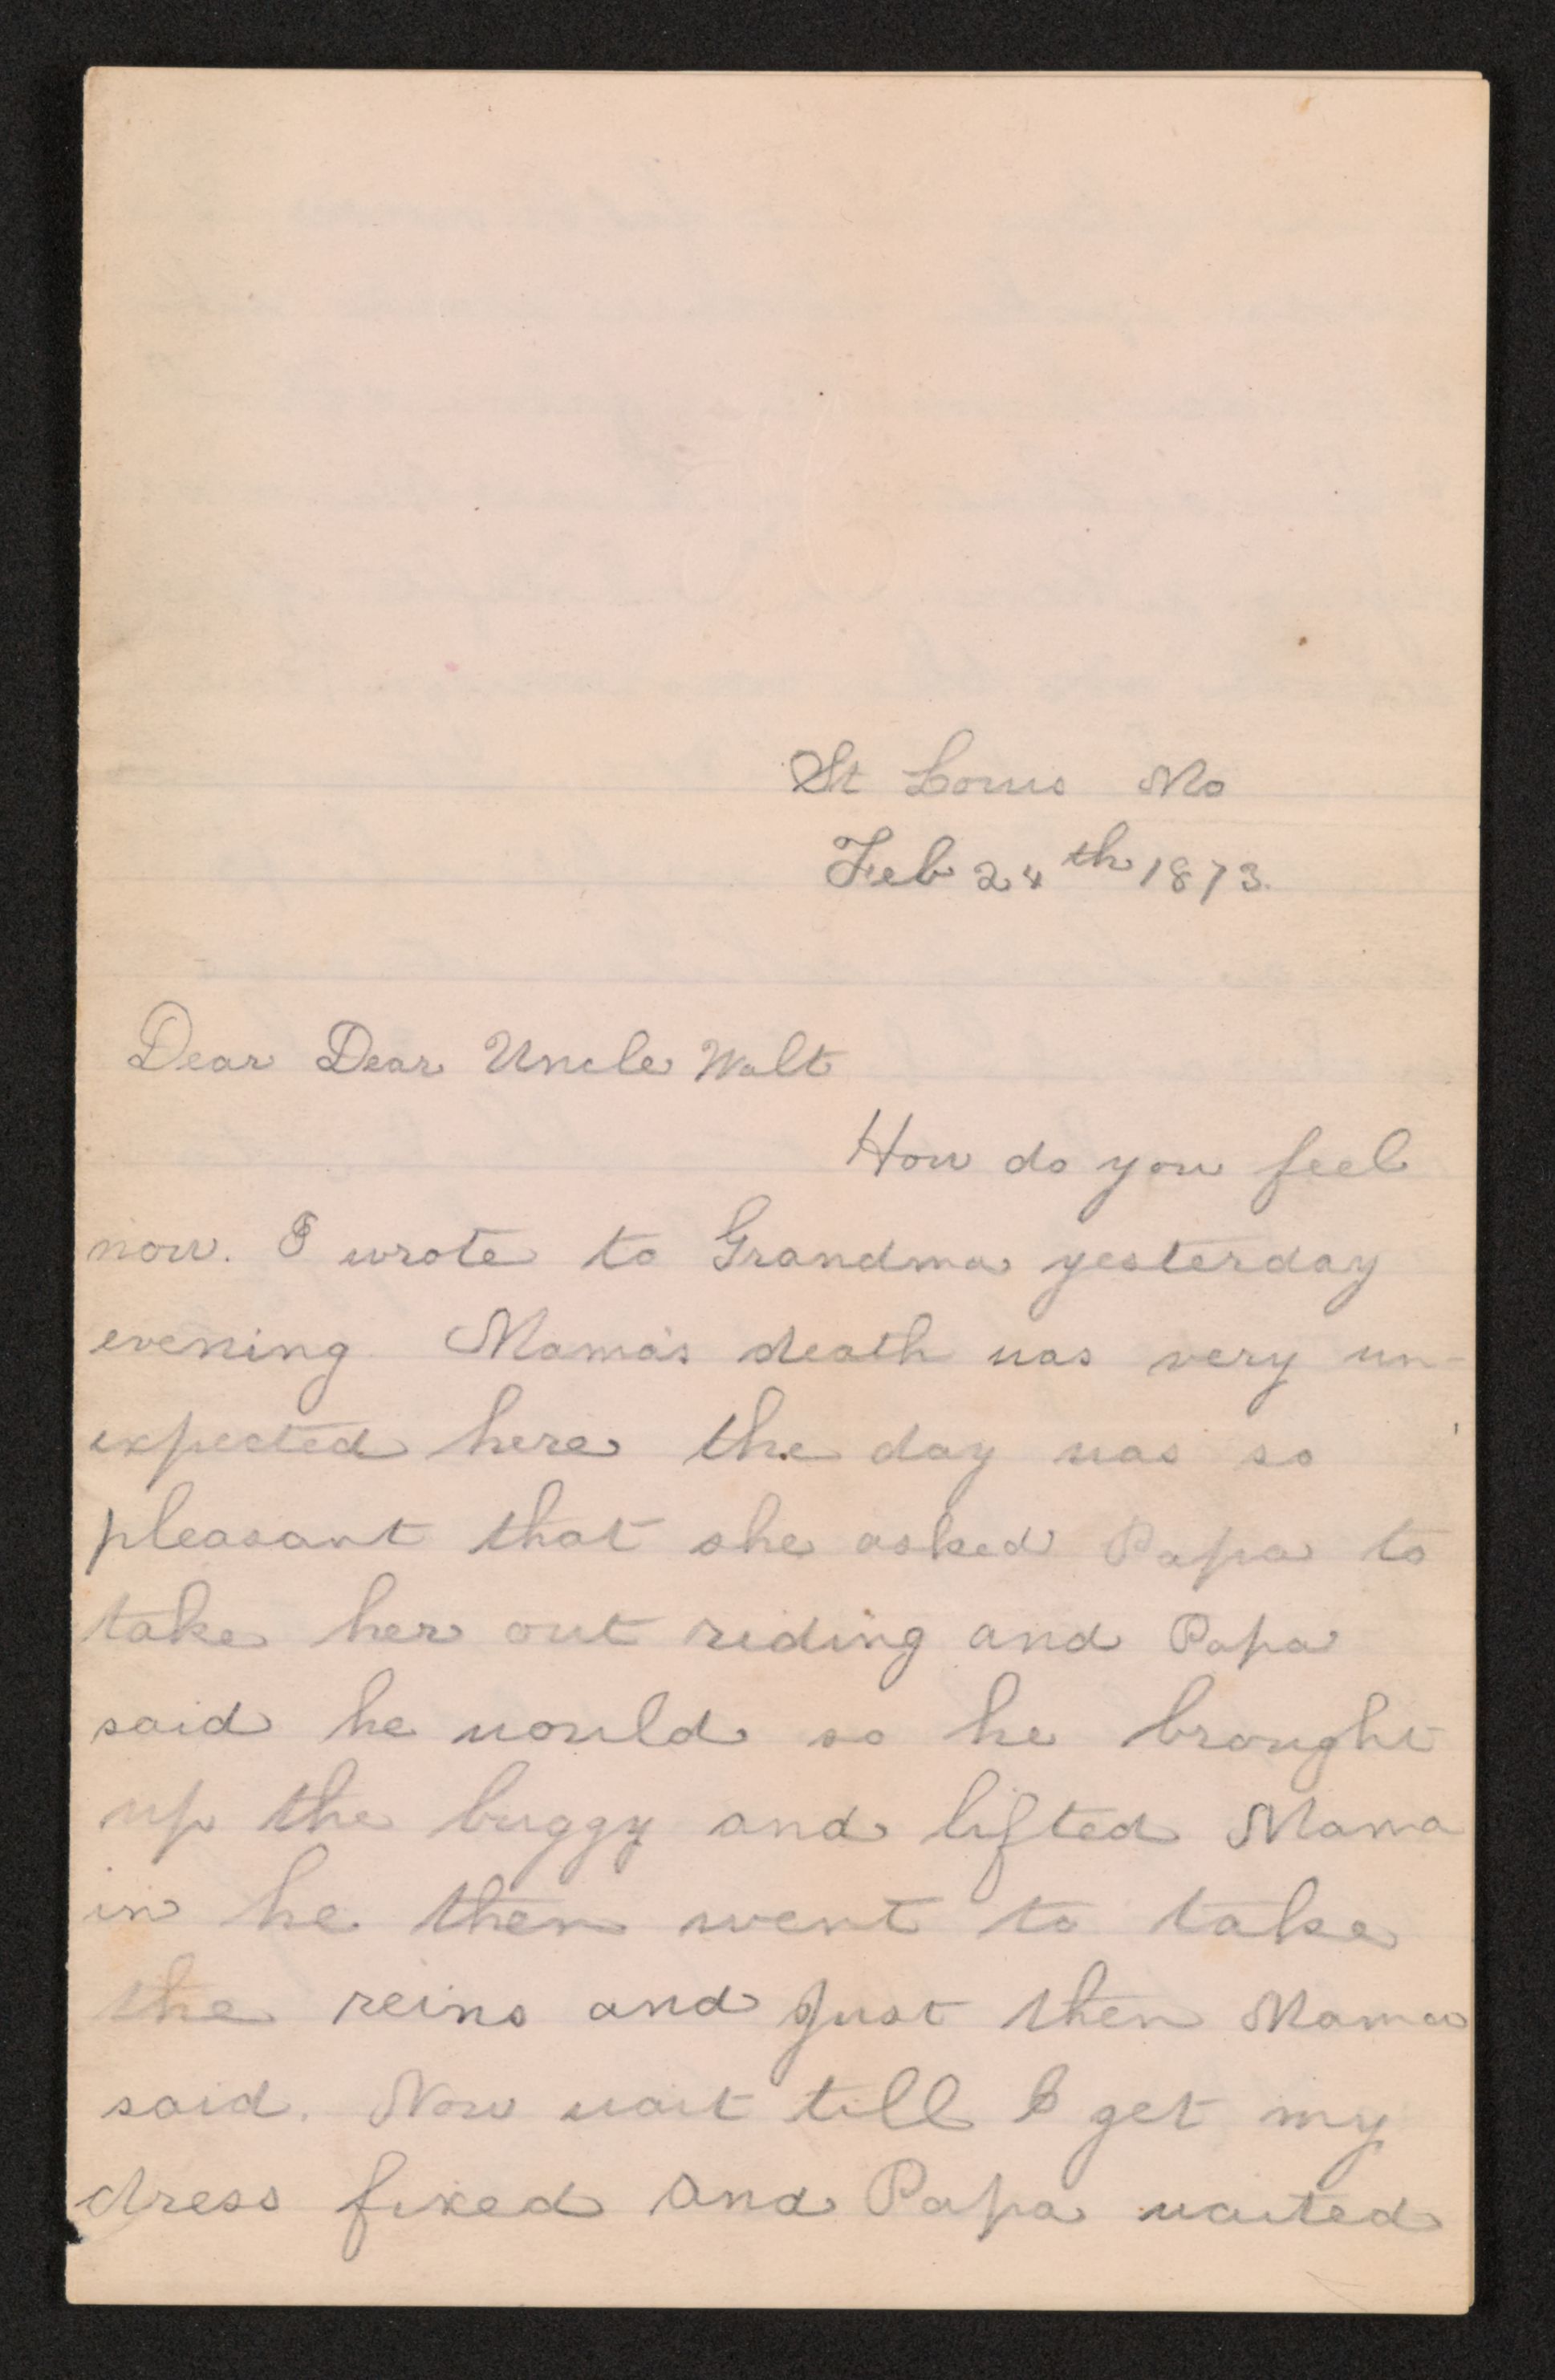 St Louis Mo
Feb 24th 1873.
Dear Dear Uncle Walt
How do you feel
now. I wrote to Grandma yesterday
evening. Mama's death was very un-
expected here the day was so
pleasant that she asked Papa to
take her out riding and Papa
said he would so he brought
up the buggy and lifted Mama
in he then went to take
the reins and just then Mama
said. Now wait till I get my
dress fixed and Papa waited